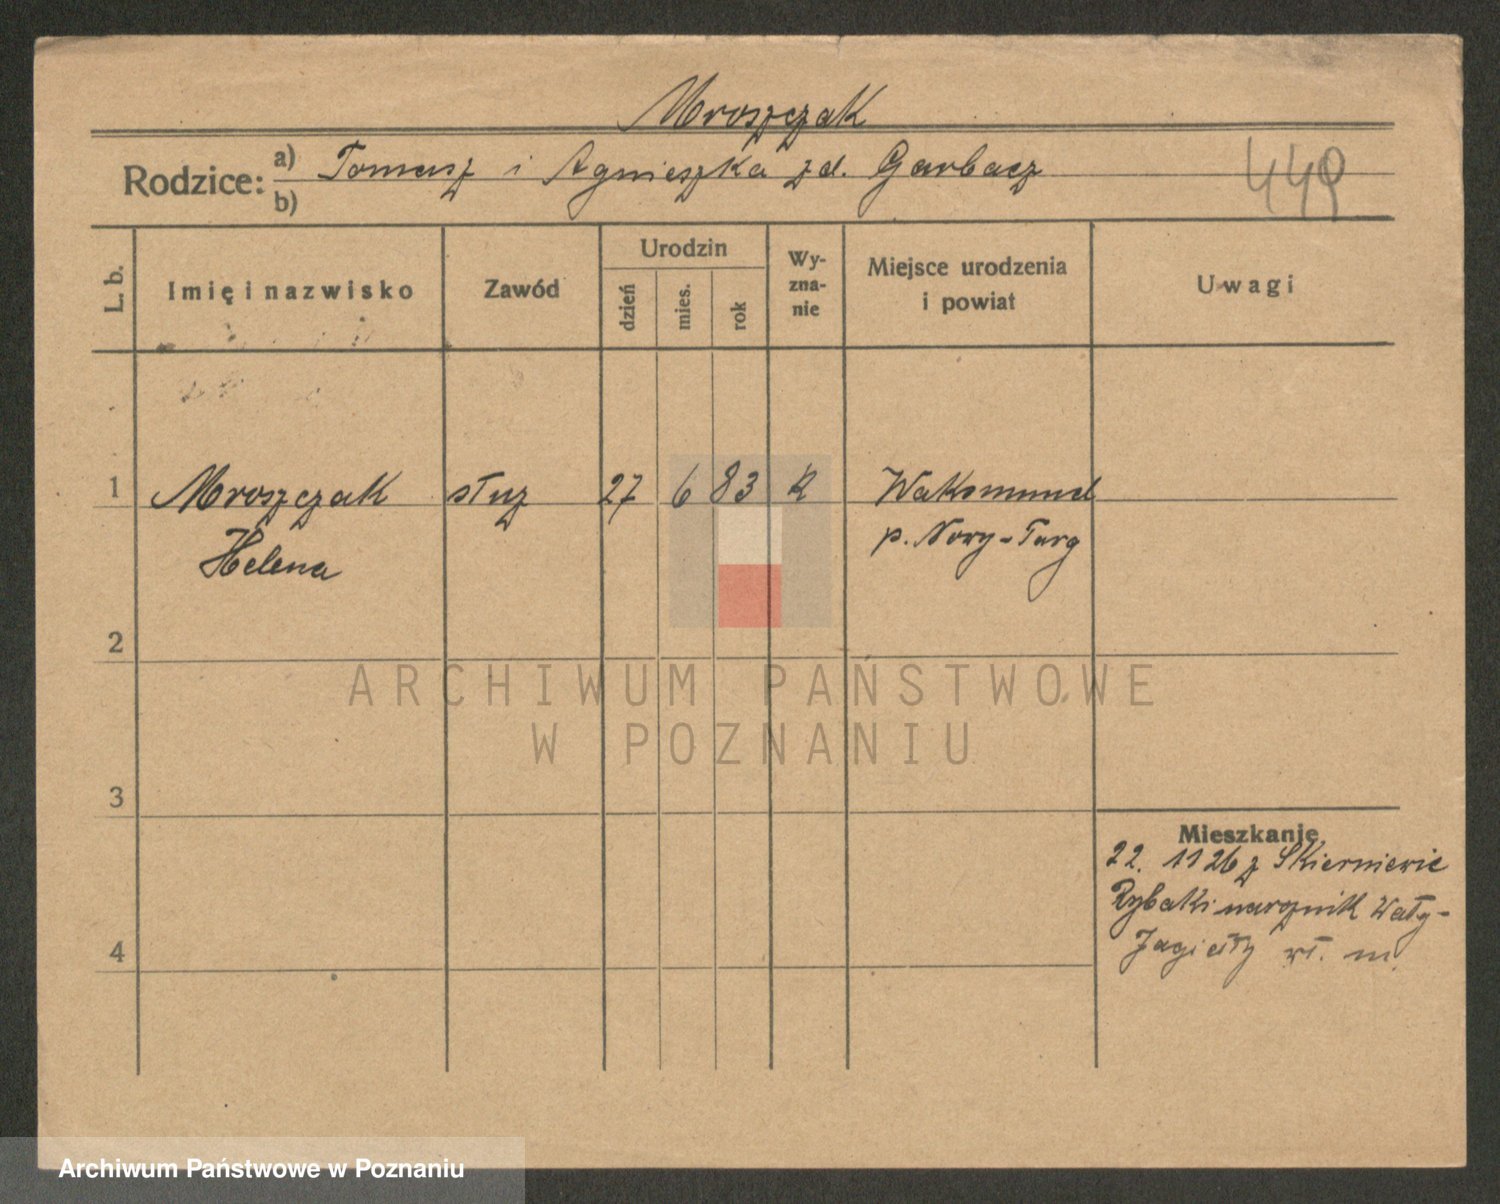 Mroszczak
Rodzice: a) Tomasz i Agnieszka zd. Garbacz
b)
449
L. b.
Imię i nazwisko
Zawód
Urodzin
dzień
mies.
rok
Wy-
zna-
nie
Miejsce urodzenia
i powiat
Uwagi
1 Mroszczak służ 27 6 83 k Waksmund
Helena p. Nowy-Targ
2
ARCHIWUM PAŃSTWOWE
W POZNANIU
3
Mieszkanie
22. 11 26 z Skierniewic
Rybaki narożnik Wały-
4 Jagiełły wł. m.
Archiwum Państwowe w Poznaniu